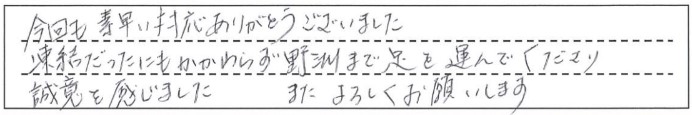 今回も素早い対応ありがとうございました
凍結だったにもかかわらず野洲まで足を運んでくださり
誠意を感じました　また よろしくお願いします